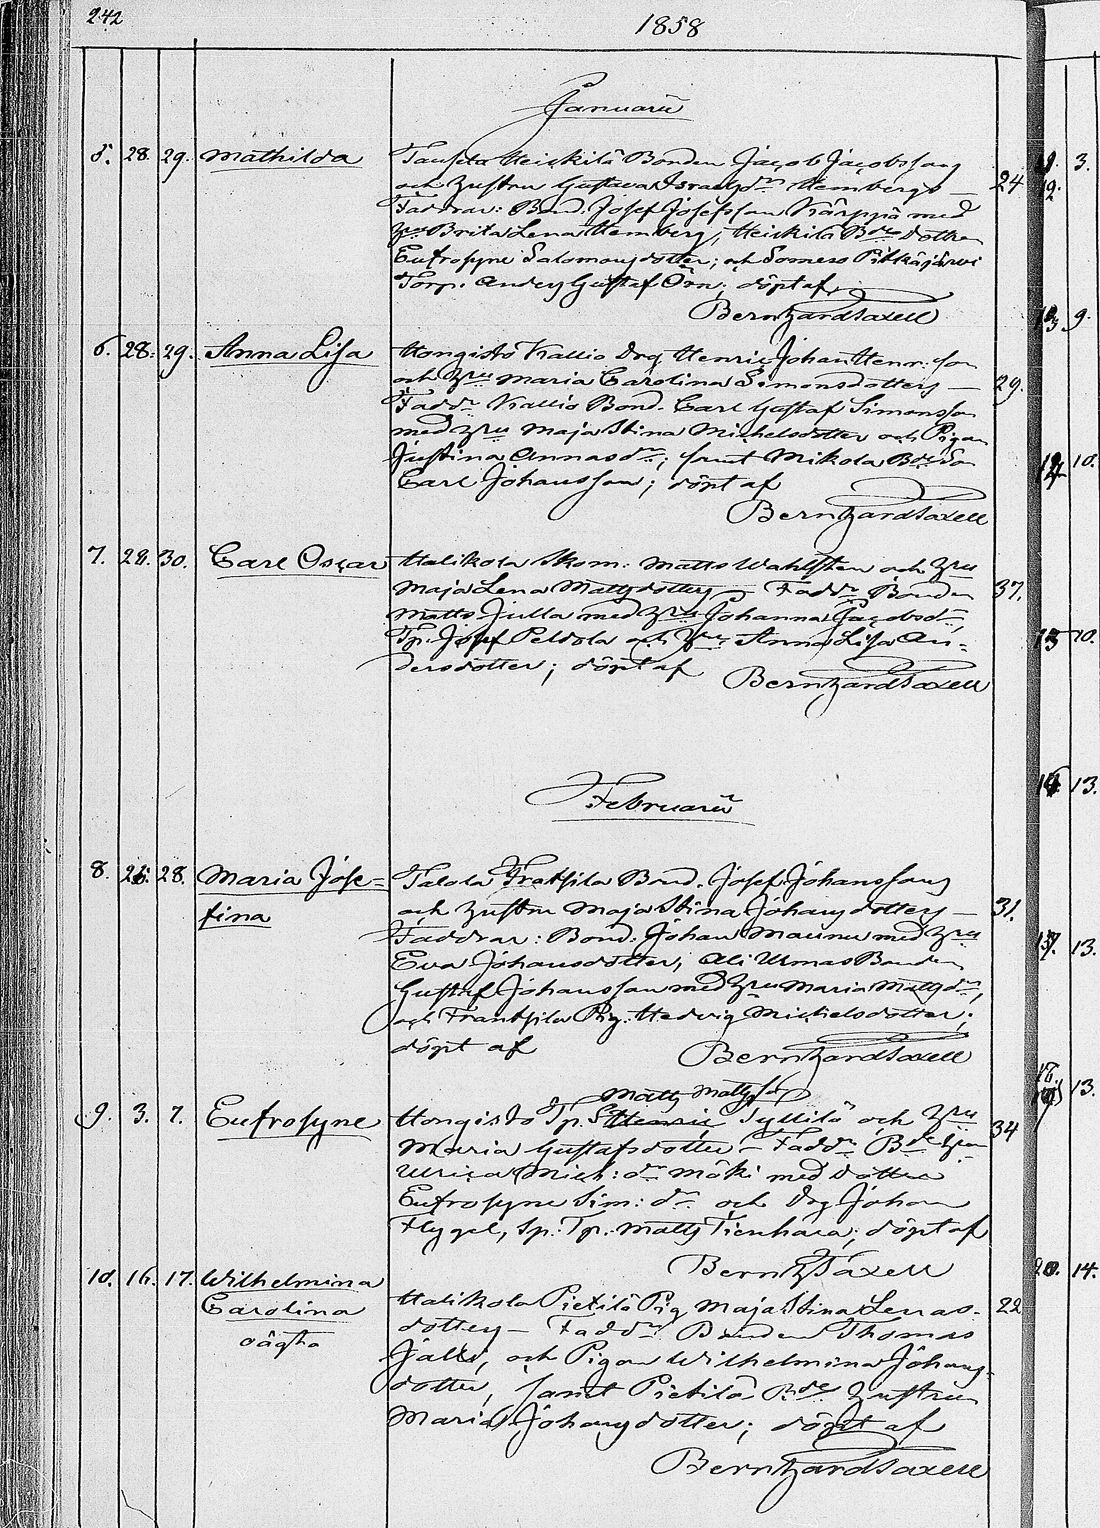 242
1858
Januarii
5. 28. 29. Mathilda Tausela Heickilä Bonden Jacob Jacobssons
och hustru Gustava Israelsdr Hembergs — 24
Faddrar: Bond. Josef Josefsson Kärppä med
hru Brita Lena Hemberg, Heickilä Bde dotter
Eufrosyne Salomonsdotter; och Somero Pitkäjärvi
Torp. Anders Gustaf Örn; döpt af
Bernhard Taxell
6. 28. 29. Anna Lisa Hongisto Kallio Drg Henric Johan Henr: son
och hru Maria Carolina Simonsdotters — 29.
Faddr Kallio Bond. Carl Gustaf Simonsson
med hru Maja Stina Michelsdotter och Pigan
Justina Annasdr, samt Mikola Bde Son
Carl Johansson; döpt af
Bernhard Taxell
7. 28. 30. Carl Oscar Halikola Skom: Matts Wahlsten och hru
Maja Lena Mattsdotters — Faddr Bonden 37.
Matts Julla med hru Johanna Jacobsdr,
Tp. Josef Peldola och hru Anna Lisa An=
dersdotter; döpt af
Bernhard Taxell
Februarii
8. 28. Maria Jose= Talola Frantsila Bond. Josef Johanssons
fina och hustru Maja Stina Johansdotters — 31.
Faddrar: Bond. Johan Maunu med hru
Eva Johansdotter, Ali Urmas Bonden
Gustaf Johansson med hru Maria Mattsdr,
och Frantsila Pig. Hedvig Michelsdotter;
döpt af
Bernhard Taxell
Matts Mattsson
9. 3. 7. Eufrosyne Hongisto Tp. Henric Syllilä och hru 34
Maria Gustafsdotter — Faddr Bde
Ulrica Mich: dr Mäki med dotter
Eufrosyne Sim: dr och Drg Johan
Flygel, Sp: Tp. Matts Tienhara; döpt af
Bernh Taxell
10. 16. 17. Wilhelmina
Carolina
oägta
Halikola Pietilä Pig Maja Stina Lenas- 22
dotters — Faddr Bonden Thomas
Jälli, och Pigan Wilhelmina Johans-
dotter, samt Pietilä Bde hustrun
Maria Johansdotter; döpt af
Bernhard Taxell
3.
9.
10.
10.
13.
13.
13.
14.